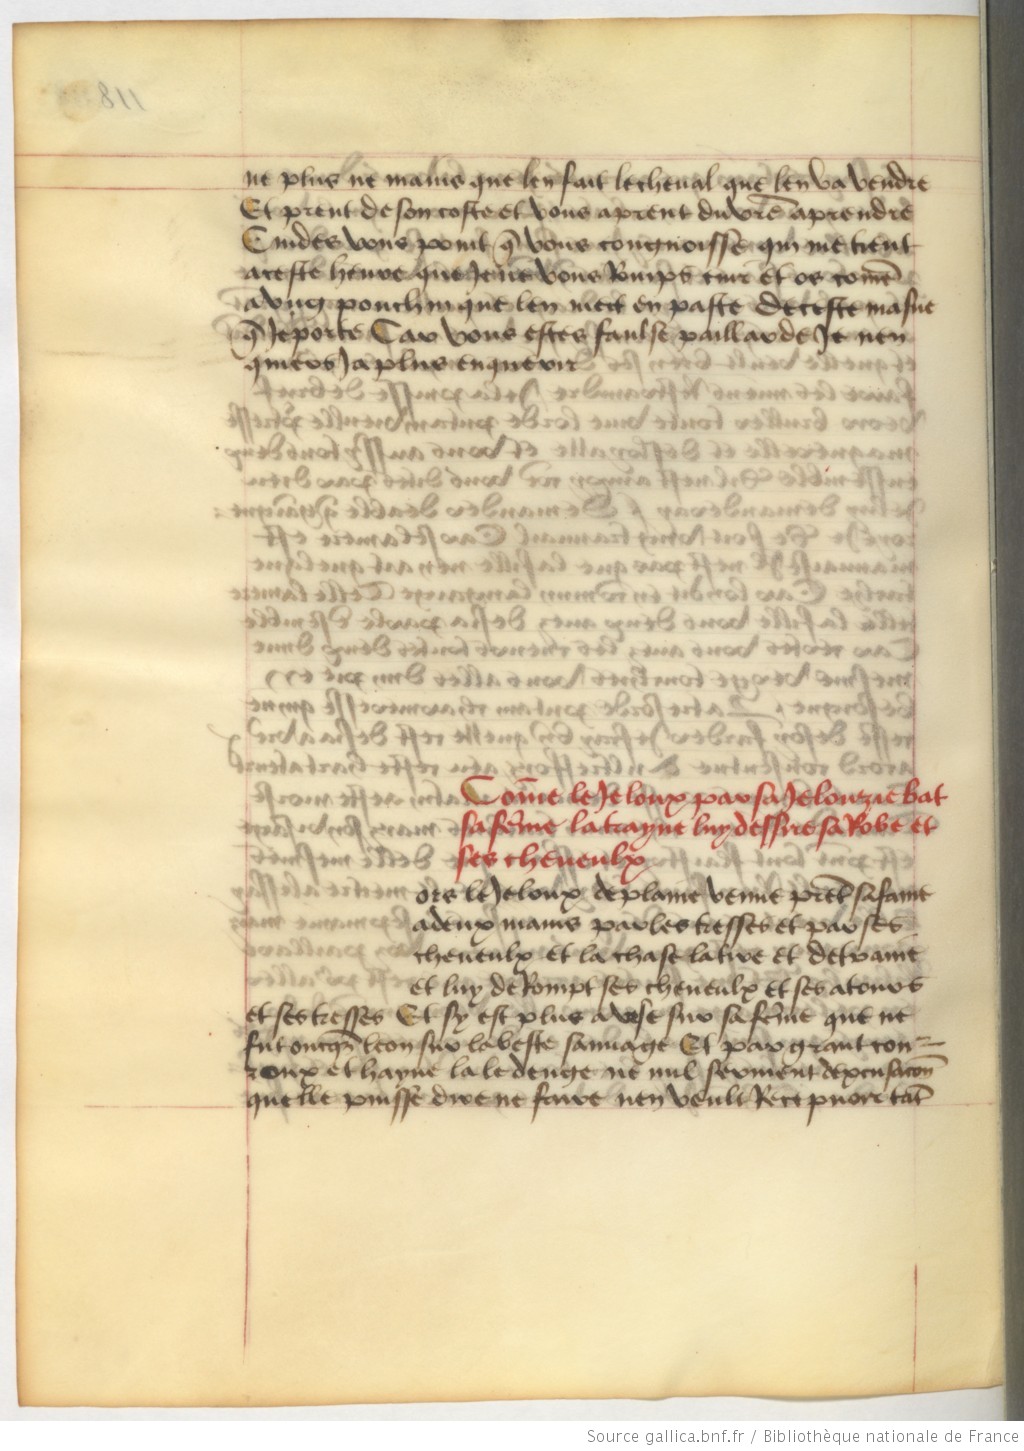 ne plus ne mains que len fait le cheual que len va vendre
Et prent de son coste et vous aprent du vre aprendre
Cuides vous point q̃ vous congnoisse qui me tient
a ceste heure que Je ne vous Romps cuir et os com̃e
a vng pouchin que len met en paste de ceste masue
q̃ Je porte Car vous estes faulse paillarde Je nen
quiers Ja plus enquerir
Com̃e le Jeloux par sa Jelouzie bat
sa fem̃e la trayne luy dessire sa Robe et
ses cheueulx
ors le Jeloux de plaine venue prẽt sa fame
a deux mains par les tresses et par ses
cheueulx et la chase la tire et detraine
et luy deRompt ses cheueulx et ses atours
et ses tresses Et sy est plus a vise sur sa fem̃e que ne
fut oncq̃s leon sur la beste sauuage Et par grant con-
roux et hayne la ledenge ne nul serment dexcusacon̄
quelle puisse dire ne faire nen veult Recepuoir tãt
Source gallica.bnf.fr / Bibliothèque nationale de France